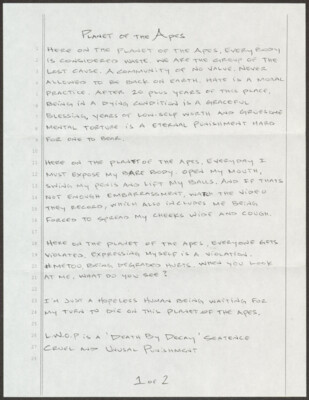 Planet of the Apes
Here on the planet of the apes, everybody
is considered waste. We are the group of the
lost cause. A community of no value, never
allowed to be back on earth. Hate is a moral
practice. After 20 plus years of this place,
being in a dying condition is a graceful
blessing, years of low self worth and gruesome
mental torture is a eternal punishment hard
for one to bear.
Here on the planet of the apes, everyday I
must expose my bare body. Open my mouth,
swing my penis and lift my balls. And if thats
not enough embarrassment, the video
they record, which also includes me being
forced to spread my cheeks wide and cough.
Here on the planet of the apes, everyone gets
violated. Expressing myself is a violation.
#MeToo being degraded hurts. When you look
at me, what do you see?
I'm just a hopeless human being waiting for
my turn to die on this planet of the apes.
L.W.O.P is a 'Death By Decay' sentence
Cruel and Unusal Punishment
1 of 2